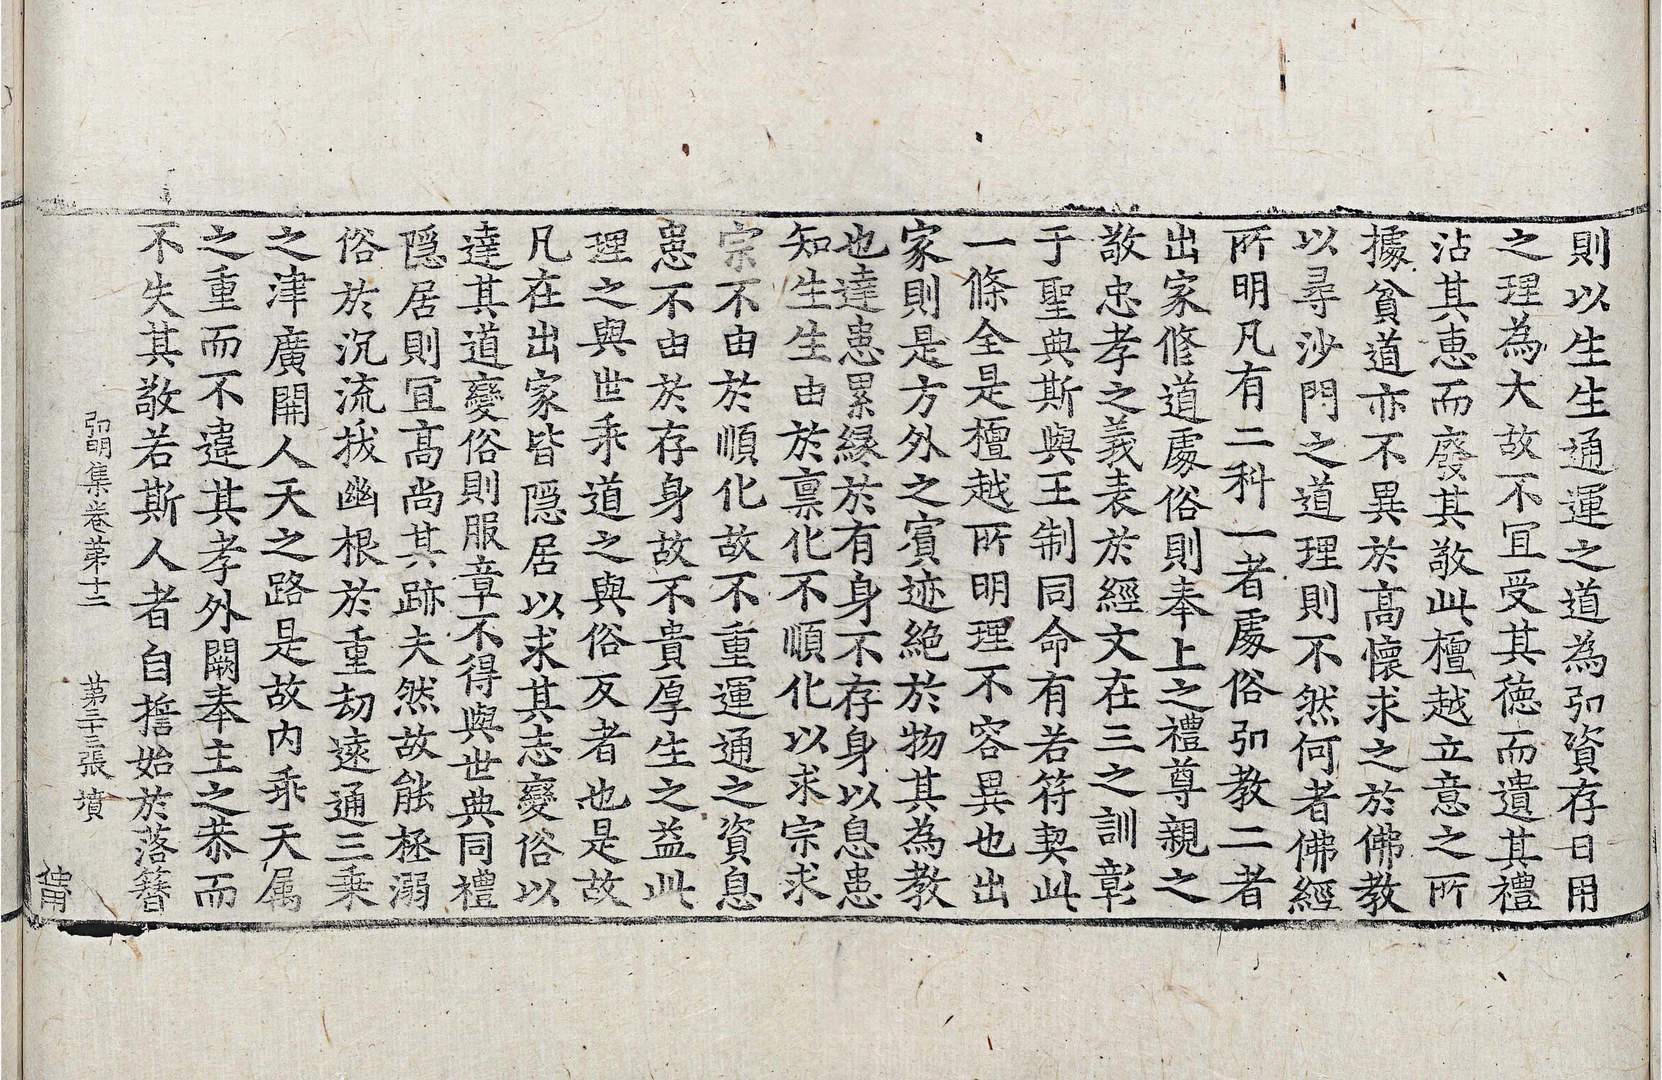 則以生生通運之道為弘資存日用
之理為大故不宜受其德而遺其禮
沾其惠而廢其敬此檀越立意之所
據貧道亦不異於高懷求之於佛教
以尋沙門之道理則不然何者佛經
所明凡有二科一者處俗弘教二者
出家修道處俗則奉上之禮尊親之
敬忠孝之義表於經文在三之訓彰
于聖典斯與王制同命有若符契此
一條全是檀越所明理不容異也出
家則是方外之賓迹絕於物其為教
也達患累緣於有身不存身以息患
知生生由於稟化不順化以求宗求
宗不由於順化故不重運通之資息
患不由於存身故不貴厚生之益此
理之與世乖道之與俗反者也是故
凡在出家皆隱居以求其志變俗以
達其道變俗則服章不得與世典同禮
隱居則宜高尚其跡夫然故能拯溺
俗於沉流拔幽根於重劫遠通三乘
之津廣開人天之路是故內乖天属
之重而不違其孝外闕奉主之恭而
不失其敬若斯人者自誓始於落簪
弘明集卷第十二 第三十三張 墳